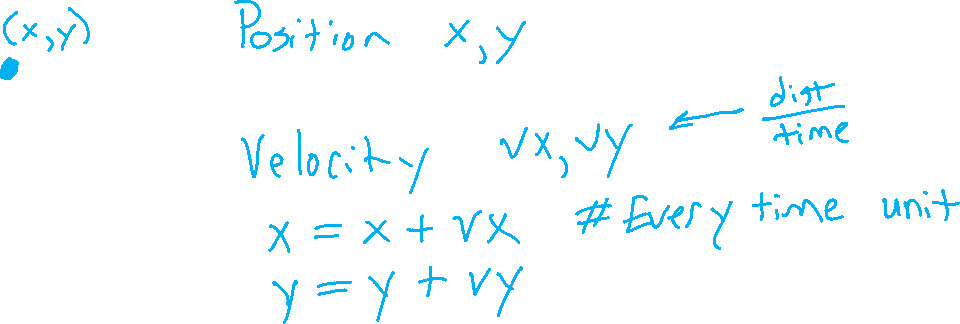 (x,y) Position x,y
Velocity vx,vy ← dist/time
x = x + vx # Every time unit
y = y + vy